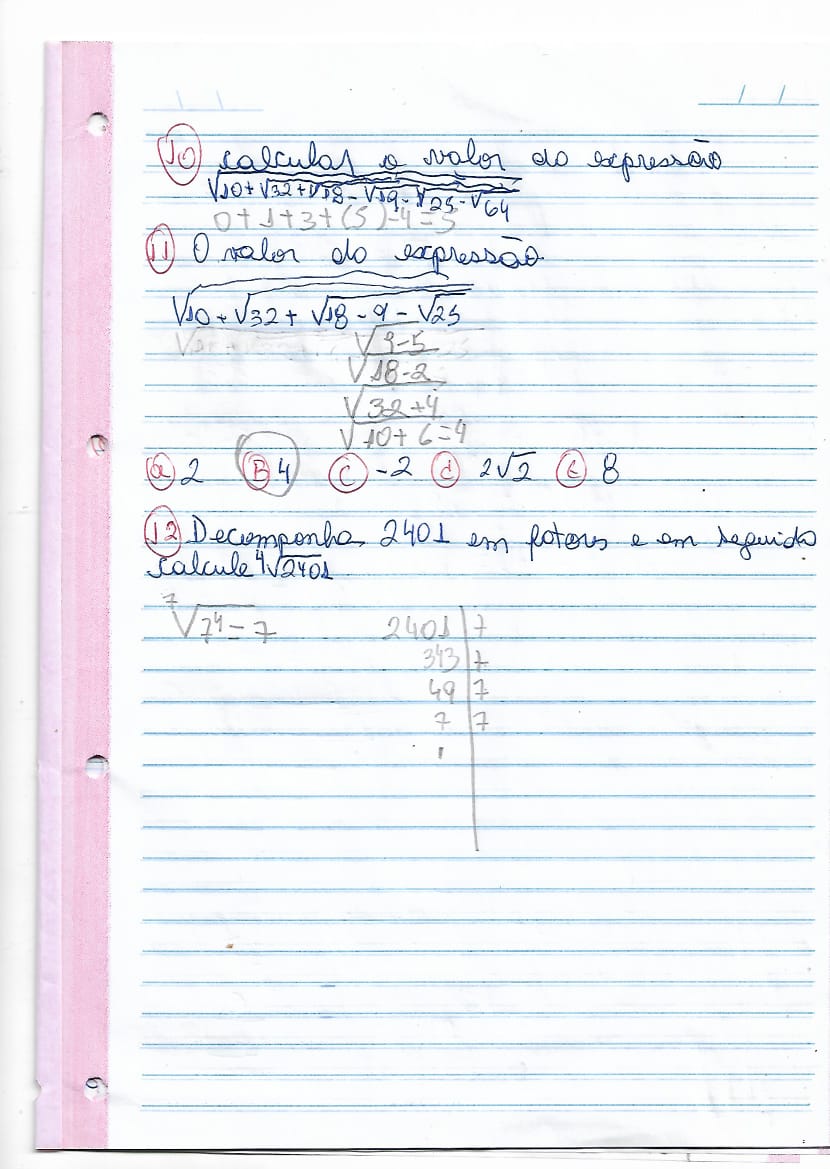 10 calcular o valor do expressão
√10+√32+√18-√19-√25-√64
0+1+3+(5)-4=5
11 O valor do expressão
√10+√32+√18-9-√25
√9-5
√18-2
√32+4
√10+6=4
a 2 B 4 C -2 d 2√2 E 8
12 Decomponha 2401 em fatores e em seguida
calcule ⁴√2401
⁷√7⁴=7 2401 7
343 7
49 7
7 7
1